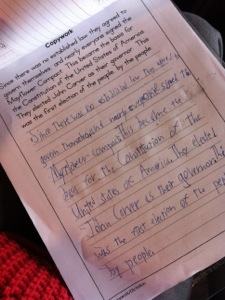 Copywork
Since there was no established law they agreed to
govern themselves and nearly everyone signed the
Mayflower Compact. This became the basis for
the Constitution of the United States of America.
They elected John Carver as their governor
was the first election of the people by the people.
Since there was no established law they
govern themselves and nearly everyone signed the
Mayflower compact This became the
basis for the Constitution of the
United states of America They elected
John Carver is their governor this
was the first election of the peo
by people